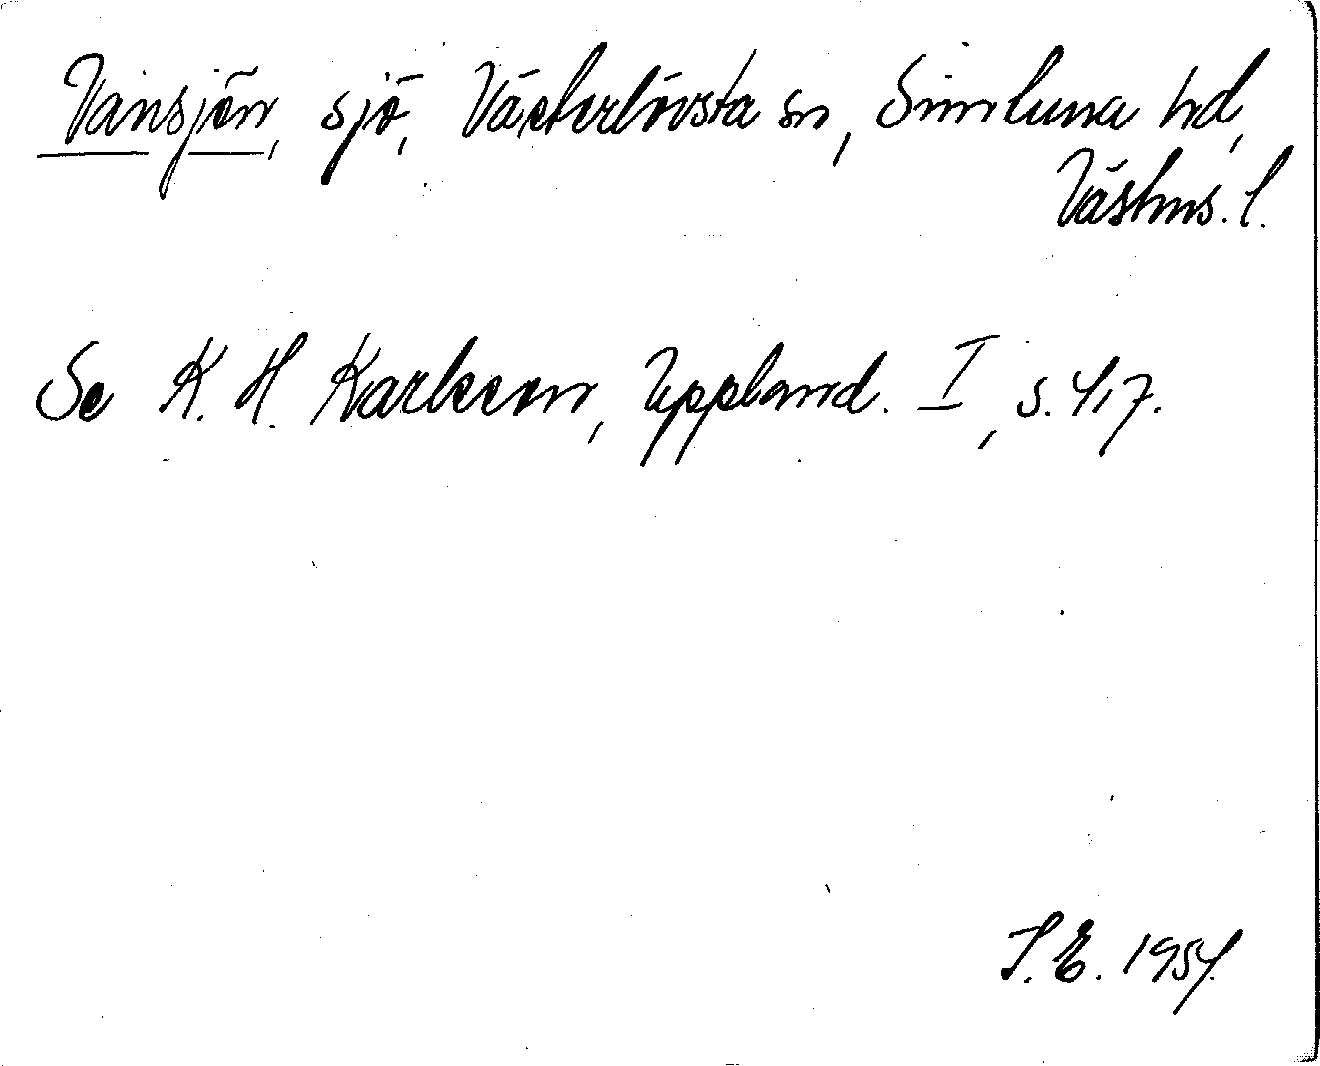 Vansjön, sjö, Västerlövsta sn, Simtuna hd,
Västms. l.
Se K. H. Karlsson, Uppland. I, s. 417.
S. E. 1954.